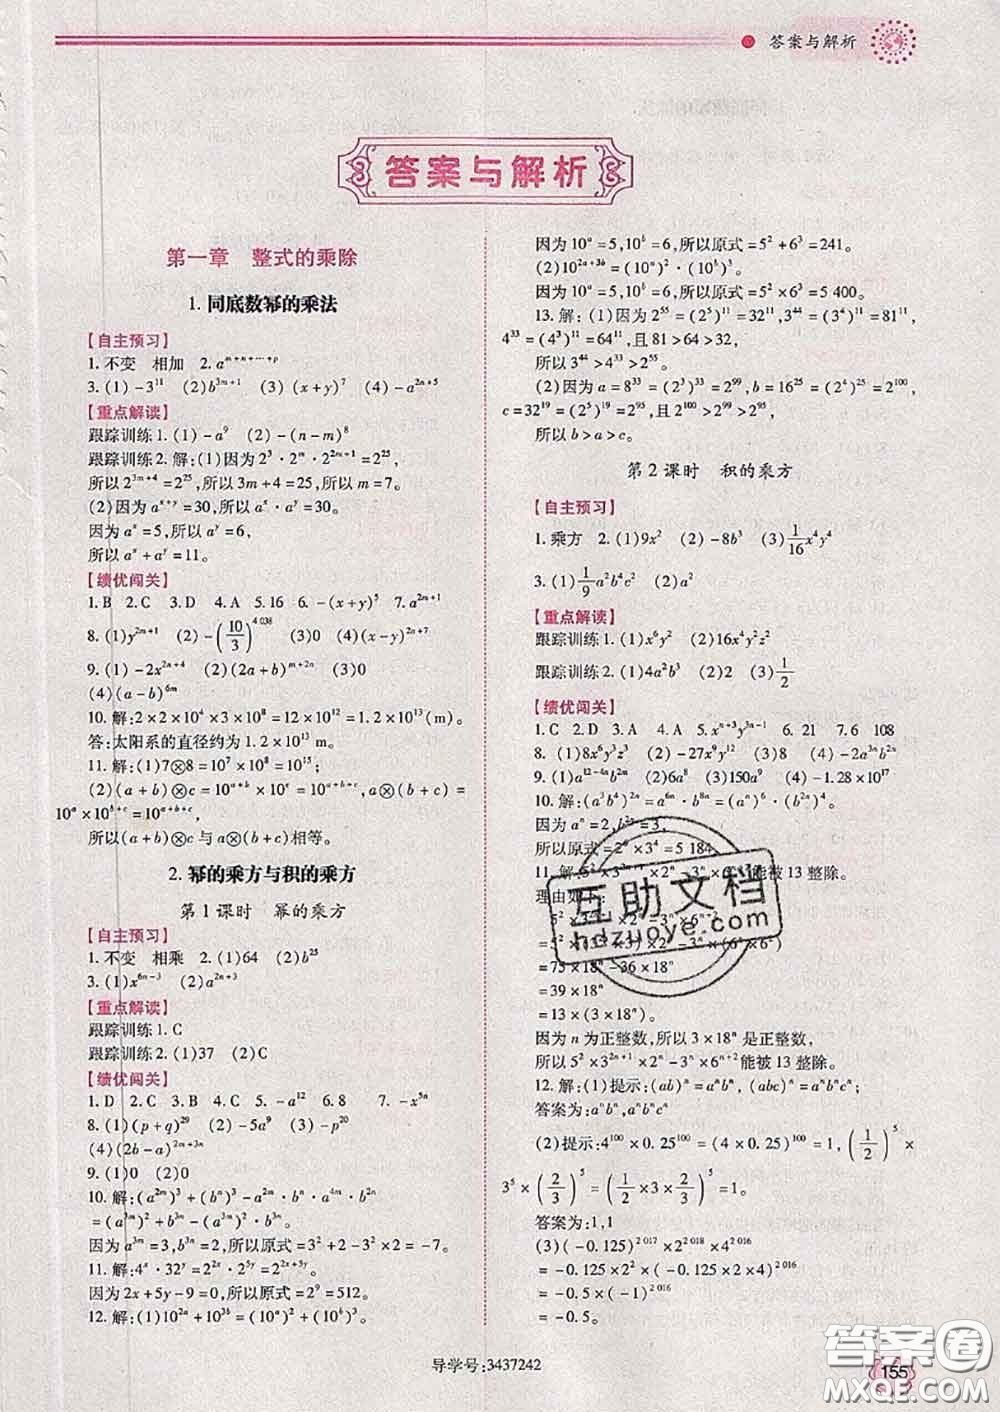 答案与解析
答案与解析
第一章 整式的乘除
1. 同底数幂的乘法
【自主预习】
1. 不变 相加 2. a^{m+n+⋯+p}
3. (1)-3^{11} (2)b^{3m+1} (3)(x+y)^7 (4)-a^{2n+5}
【重点解读】
跟踪训练1. (1)-a^9 (2)-(n-m)^8
跟踪训练2. 解:(1)因为2^3·2^m·2^{2m+1}=2^{25},
所以2^{3m+4}=2^{25},所以3m+4=25,所以m=7。
(2)因为a^{x+y}=30,所以a^x·a^y=30,
因为a^x=5,所以a^y=6,
所以a^x+a^y=11。
【绩优闯关】
1. B 2. C 3. D 4. A 5. 16 6. -(x+y)^5 7. a^{2m+1}
8. (1)y^{2m+1} (2)-(10/3)^{4 038} (3)100 (4)(x-y)^{2n+7}
9. (1)-2x^{2n+4} (2)(2a+b)^{m+2n} (3)0
(4)(a-b)^{6m}
10. 解:2×2×10^4×3×10^8=12×10^{12}=1.2×10^{13}(m)。
答:太阳系的直径约为1.2×10^{13} m。
11. 解:(1)7⊗8=10^7×10^8=10^{15};
(2)(a+b)⊗c=10^{a+b}×10^c=10^{a+b+c},a⊗(b+c)=
10^a×10^{b+c}=10^{a+b+c},
所以(a+b)⊗c与a⊗(b+c)相等。
2. 幂的乘方与积的乘方
第1课时 幂的乘方
【自主预习】
1. 不变 相乘 2. (1)64 (2)b^{25}
3. (1)x^{6n-3} (2)a^{2n+3}
【重点解读】
跟踪训练1. C
跟踪训练2. (1)37 (2)C
【绩优闯关】
1. D 2. C 3. C 4. C 5. -a^{12} 6. 8 7. -x^{5n}
8. (1)(p+q)^{29} (2)-5a^9 (3)-p^{20}
(4)(2b-a)^{2m+3n}
9. (1)0 (2)0
10. 解:(a^{2m})^3+(b^n)^3-a^{2m}·b^n·a^{4m}·b^{2n}
=(a^{3m})^2+b^{3n}-(a^{3m})^2·b^{3n}。
因为a^{3m}=3,b^{3n}=2,所以原式=3^2+2-3^2×2=-7。
11. 解:4^x·32^y=2^{2x}·2^{5y}=2^{2x+5y}。
因为2x+5y-9=0,所以原式=2^9=512。
12. 解:(1)10^{2a}+10^{3b}=(10^a)^2+(10^b)^3。
因为10^a=5,10^b=6,所以原式=5^2+6^3=241。
(2)10^{2a+3b}=(10^a)^2·(10^b)^3。
因为10^a=5,10^b=6,所以原式=5^2×6^3=5 400。
13. 解:(1)因为2^{55}=(2^5)^{11}=32^{11},3^{44}=(3^4)^{11}=81^{11},
4^{33}=(4^3)^{11}=64^{11},且81>64>32,
所以3^{44}>4^{33}>2^{55}。
(2)因为a=8^{33}=(2^3)^{33}=2^{99},b=16^{25}=(2^4)^{25}=2^{100},
c=32^{19}=(2^5)^{19}=2^{95},且2^{100}>2^{99}>2^{95},
所以b>a>c。
第2课时 积的乘方
【自主预习】
1. 乘方 2. (1)9x^2 (2)-8b^3 (3)1/16 x^4y^4
3. (1)1/9 a^2b^4c^2 (2)a^2
【重点解读】
跟踪训练1. (1)x^6y^2 (2)16x^4y^2z^2
跟踪训练2. (1)4a^2b^3 (2)2 (3)1/2
【绩优闯关】
1. C 2. D 3. A 4. A 5. x^{n+3}y^{3n-1} 6. 21 7. 6 108
8. (1)8x^6y^3z^3 (2)-27x^9y^{12} (3)8 (4)-2a^{3n}b^{2n}
9. (1)a^{12-4n}b^{2m} (2)6a^8 (3)150a^9 (4)-1.28×10^{17}
10. 解:(a^3b^4)^{2n}=a^{6n}·b^{8n}=(a^n)^6·(b^{2n})^4。
因为a^n=2,b^{2n}=3,
所以原式=2^6×3^4=5 184
11. 解:5^2×3^{2n+1} 能被13整除。
理由如下:
5^2×3^{2n+1}×2^n-3^n×6^{n+2}
=75×18^n-36×18^n
=39×18^n
=13×(3×18^n)。
因为n为正整数,所以3×18^n是正整数,
所以5^2×3^{2n+1}×2^n-3^n×6^{n+2}能被13整除。
12. 解:(1)提示:(ab)^n=a^nb^n,(abc)^n=a^nb^nc^n;
答案为:a^nb^n,a^nb^nc^n
(2)提示:4^{100}×0.25^{100}=(4×0.25)^{100}=1,(1/2)^5×
3^5×(2/3)^5=(1/2×3×2/3)^5=1。
答案为:1,1
(3)(-0.125)^{2 017}×2^{2 018}×4^{2 016}
=-0.125×2^2×(-0.125×2×4)^{2 016}
=-0.5×(-1)^{2 016}
=-0.5。
互助文档
hdzuoye.com
导学号:3437242
155
答案圈
MXQE.COM